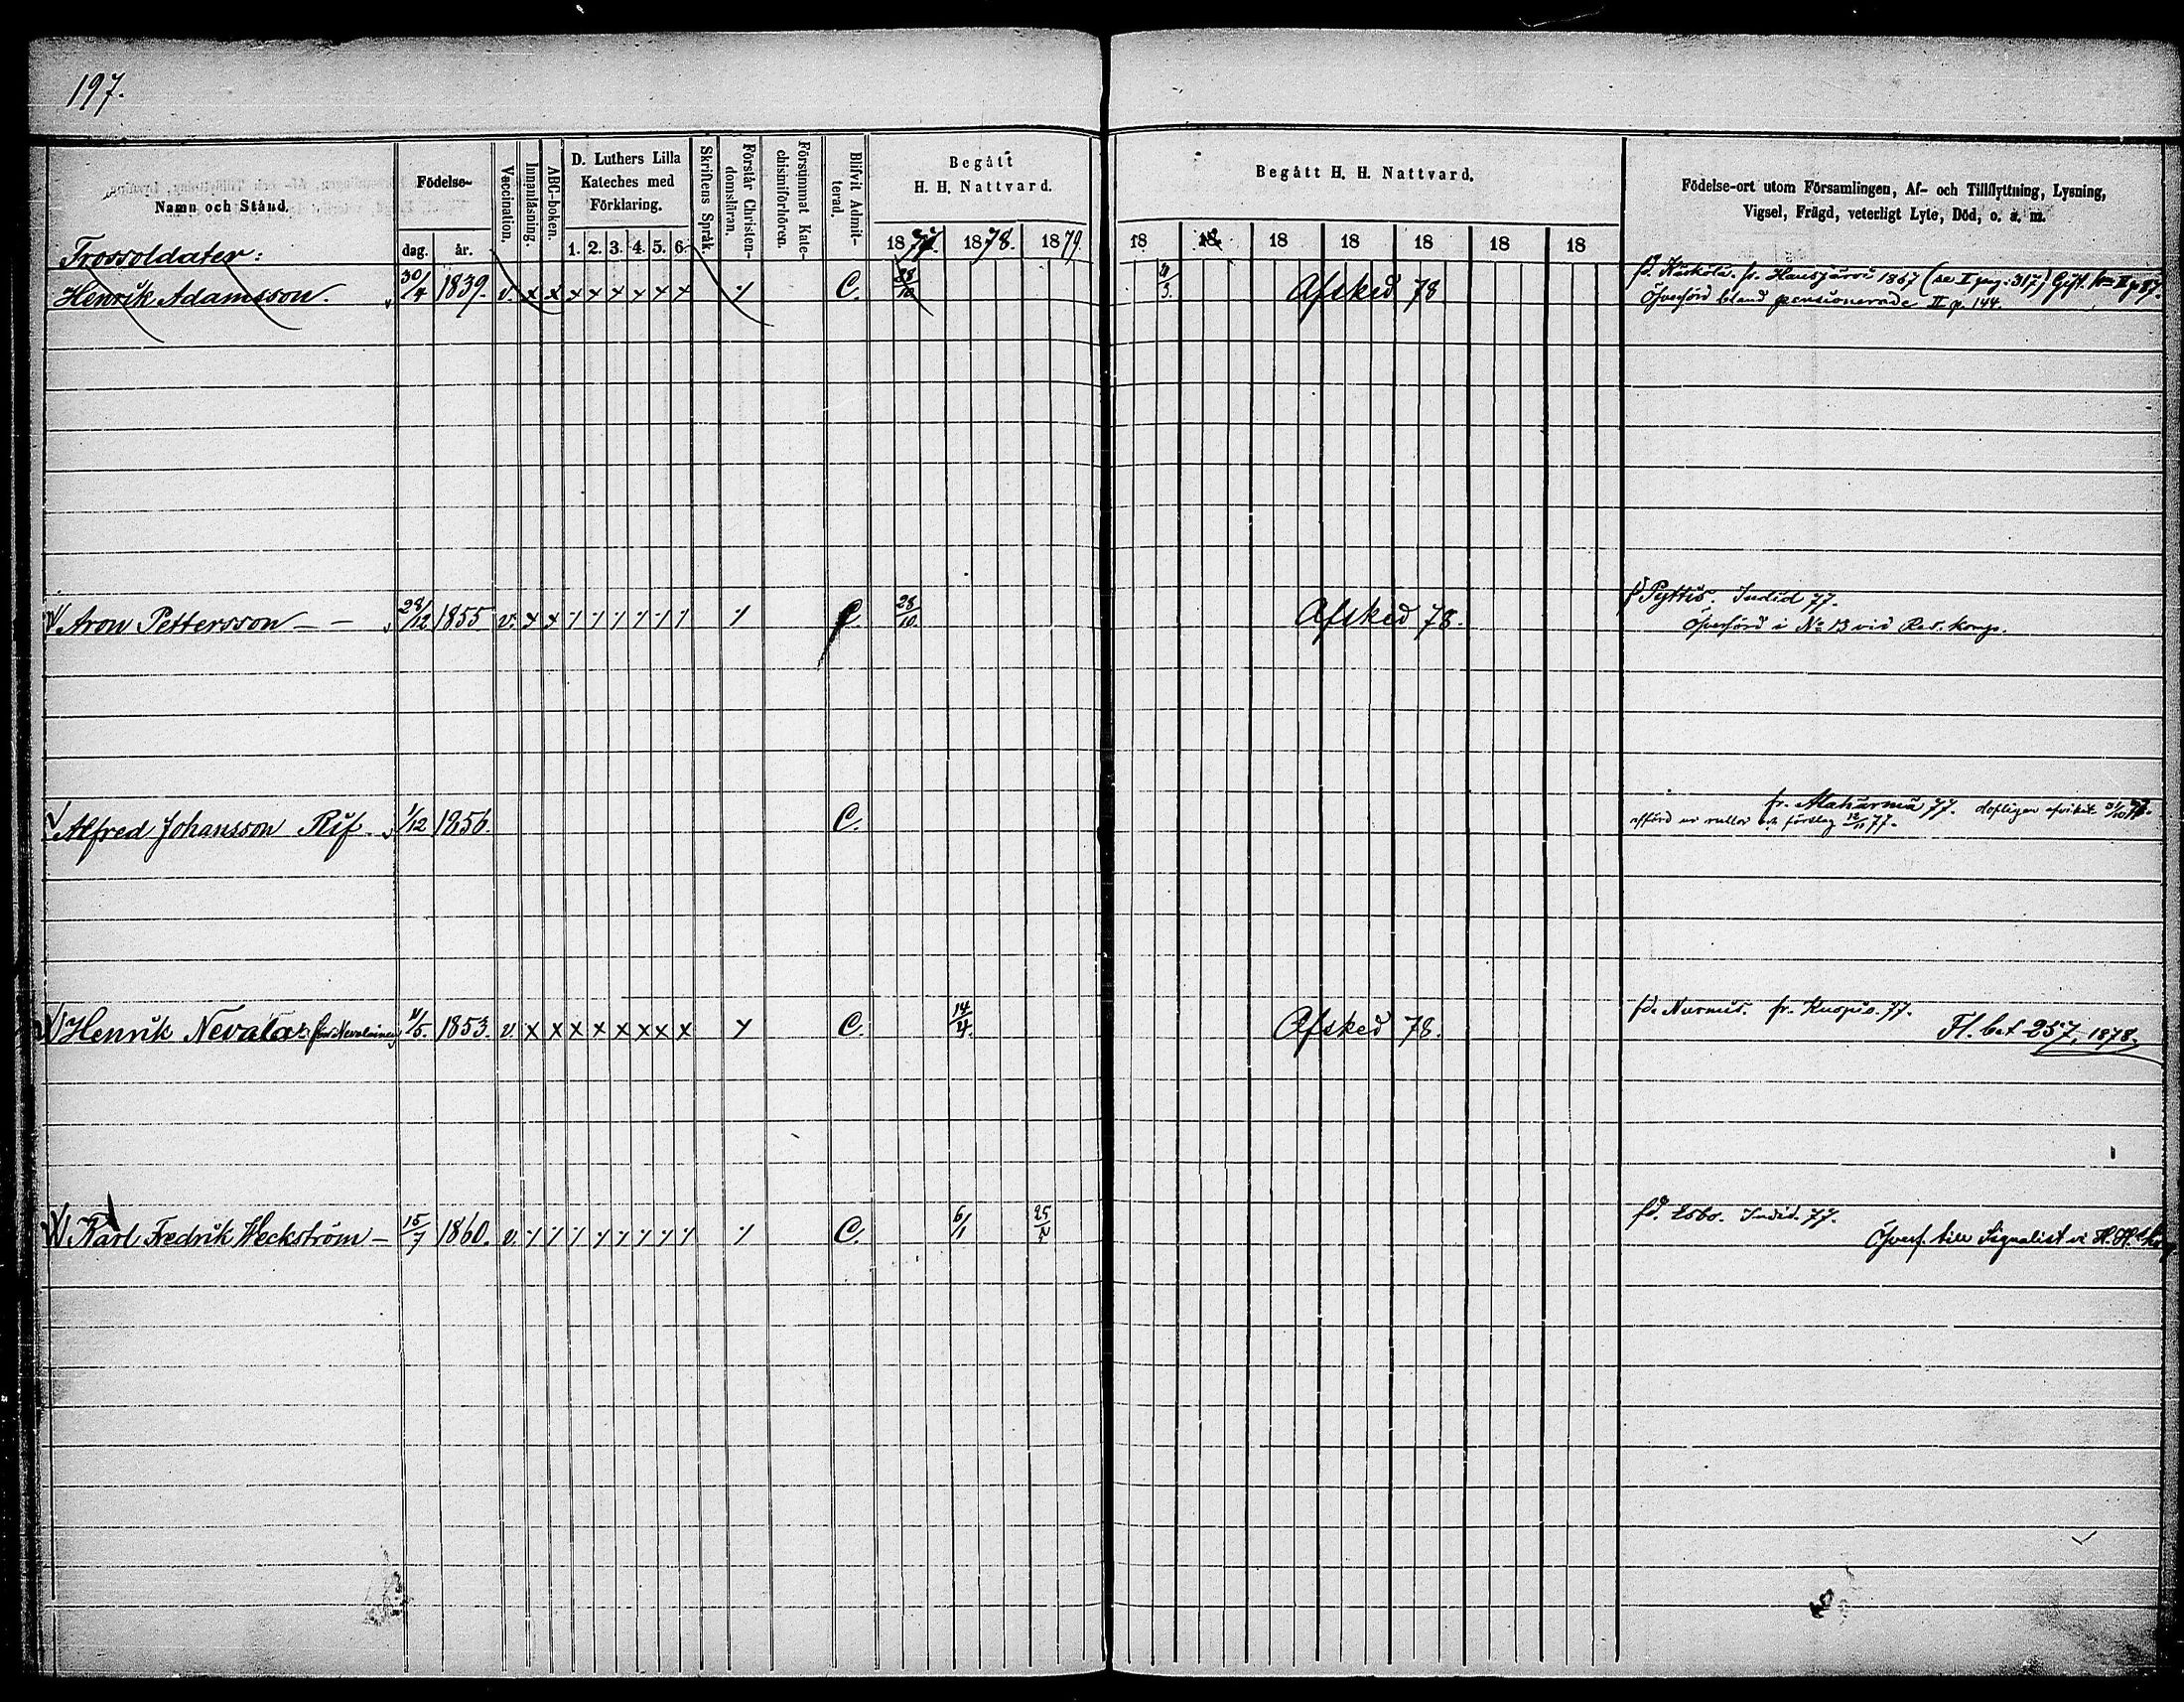 197.
Namn och Stånd.
Födelse-
dag. år.
Vaccination.
Innanläsning.
ABC-boken.
D. Luthers Lilla
Kateches med
Förklaring.
1. 2. 3. 4. 5. 6.
Skriftens Språk.
Förstår Christen-
domsläran.
Försummat Kate-
chismiförhören.
Blifvit Admit-
terad.
Begått
H. H. Nattvard.
1877. 1878. 1879.
Begått H. H. Nattvard.
18 18 18 18 18 18 18
Födelse-ort utom Församlingen, Af- och Tillflyttning, Lysning,
Vigsel, Frägd, veterligt Lyte, Död, o. s. m.
Trossoldater:
Henrik Adamsson. 30/4 1839. v. x x x x x x x x C. 28/10 Afsked 78
fr. Hausjärvi 1867 (se I pag: 317) Gift.
Öfverförd bland pensionerade II p. 144.
Aron Pettersson — — 28/12 1855 v. x x C. 28/10. Afsked 78.
f. Pyttis. Indid 77.
Öfverförd i No 13 vid Res. komp.
Alfred Johansson Rif. 1/12 1856. C.
fr. Alahärmä 77.
afförd ur rullor 12/11 77.
Henrik Nevala 1853. v. x x x x x x x x C. 14/4. Afsked 78.
fd. Nurmis. fr. Kuopio. 77.
Fl. bet 257, 1878.
Karl Fredrik Heckström — 15/7 1860. v. C. 6/1 25/
fd. Esbo. Indid. 77.
Öfverf. till Signalist